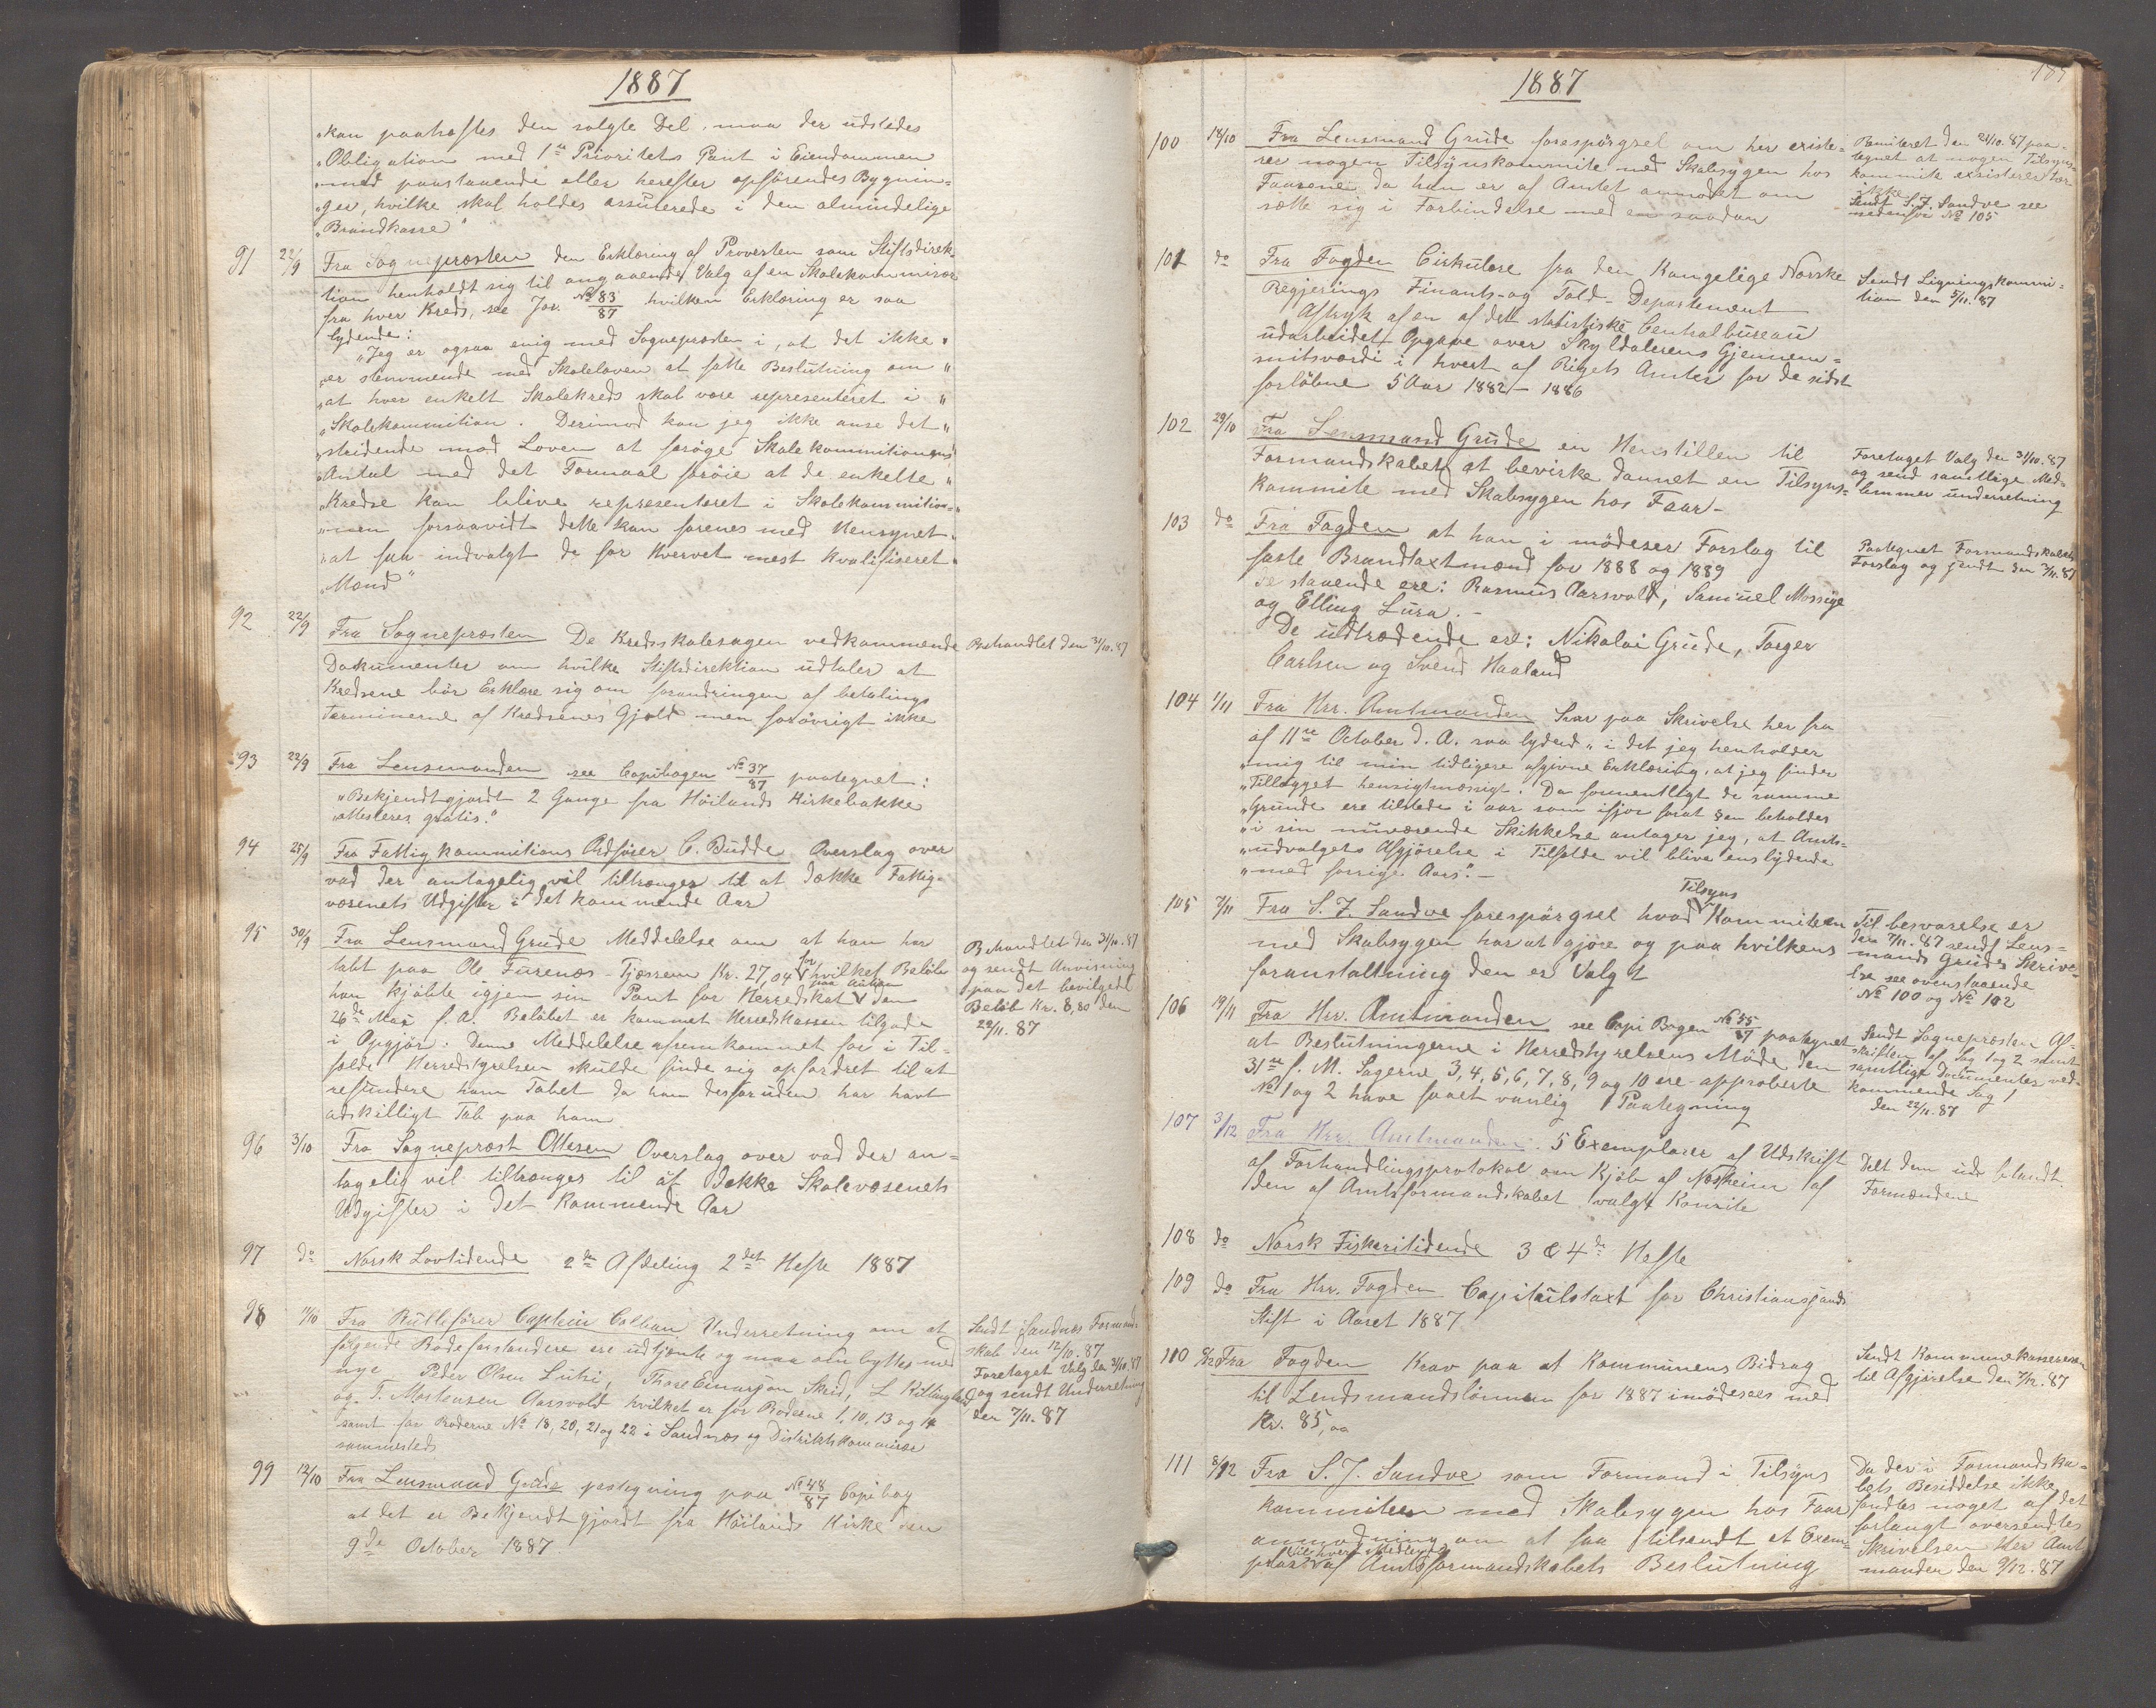 1887
"kan paahæftes den solgte Del, maa der udstedes
"Obligation med 1ste Prioritets Pant i Eiendommen
"med paastaaende eller herefter opförendes Bygnin=
"ger, hvilke skal holdes assurerede i den almindelige
"Brandkasse"
91 22/9 Fra Sognepresten den Erklæring af Provsten som Stiftsdirek=
tion henholdt sig til angaaende Valg af en Skolekommissær
fra hver Kreds, see Jor. No 83/87 hvilken Erklæring er saa
lydende:
"Jeg er ogsaa enig med Sognepresten i, at det ikke "
"er stemmende med Skoleloven at fatte Beslutning om "
"at hver enkelt Skolekreds skal være repræsenteret i "
"Skolekommition. Derimod kan jeg ikke anse det "
"stridende mod Loven at foröge Skolekommitionens "
"Antal med det Formaal foröie at de enkelte "
"Kredse kan blive repræsenteret i Skolekommition="
"nen forsaavidt dette kan forenes med Hensynet "
"at faa indvalgt de for Hvervet mest kvalifiseret "
"Mænd"
92 22/9 Fra Sognepresten De Kredsskolesagen vedkommende Behandlet den 31/10.87
Dokumenter om hvilke Stiftsdirektion udtaler at
Kredsene bör Erklære sig om forandringen af betalings
terminerne af Kredsenes Gjæld men forövrigt ikke
93 22/9 Fra Lensmanden see Copibogen No 37/87 paategnet:
"Bekjendtgjordt 2 Gange fra Höilands Kirkebakke
"attesteres gratis."
94 25/9 Fra Fattigkommitions Ordförer C. Budde Overslag over
vad der antagelig vil tiltrænges til at dække Fattig=
væsenets Udgifter i det kommende Aar
95 30/9 Fra Lensmand Grude Meddelelse om at han har
tabt paa Ole Furenæs-Tjessem Kr. 27,04 for hvilket Belöb
han kjöbte igjen sin Pant for Herredskat paa Auktion den
26de Mai f. A. Belöbet er kommet Herredskassen tilgode
i Opgjör. Denne Meddelelse afremkommet for i Til=
fælde Herredstyrelsen skulde finde sig opfordret til at
refundere ham Tabet da han desforuden har havt
adskilligt Tab paa ham
Behandlet den 31/10.87
og sendt Anvisning
paa det bevilgede
Belöb Kr. 8,80 den
22/11.87
96 3/10 Fra Sogneprest Ottesen Overslag over vad der an=
tagelig vil tiltrænges til at Dække Skolevæsenets
Udgifter i det kommende Aar
97 do Norsk Lovtidende 2den Afdeling 2det Hefte 1887
98 11/10 Fra Rulleförer Captein Colban Underretning om at
fölgende Rodeforstandere ere udtjente og maa ombyttes med
nye Peder Olsen Lutsi, Thore Einarsen Skeid, L Kallinghelad
og T. Mortensen Aarsvold hvilket er for Roderne 1, 10, 13 og 14
samt for Roderne No 18, 20, 21 og 22 i Sandnæs og Distriktskommisær
sammesteds
Sendt Sandnæs Formand=
skab den 12/10.87
Foretaget Valg den 31/10.87
og sendt Underretning
den 7/11.87
99 12/10 Fra Lensmand Grude pategning paa No 48/87 Copibog
at det er Bekjendtgjordt fra Höilands Kirke den
9de October 1887
1887
100 18/10 Fra Lensmand Grude forespörgsel om her existe=
rer nogen Tilsynskommite med Skabsygen hos
Faarene, da han er af Amtet anmodet om
sætte sig i Forbindelse med en saadan
Remiteret den 24/10.87 paa=
tegnet at nogen Tilsyns=
kommite exsisterer her
ikke
Sendt S.J. Sandve see
nedenfor No 105
101 do Fra Fogden Cirkulære fra den Kongelige Norske
Regjerings Finants- og Told-Departement
Aftryk af en af det statistiske Centralbureau
udarbeidet Opgave over Skylddalerens Gjennem=
snitsværdi i hvert af Rigets Amter for de sidst
forlöbne 5 Aar 1882-1886
Sendt Ligningskommi=
tion den 5/11.87
102 29/10 Fra Lensmand Grude en Henstillen til
Formandskabet at bevirke dannet en Tilsyns=
kommite med Skabsygen hos Faar-
Foretaget Valg den 31/10.87
og send samtlige Med=
lemmer underretning
103 do Fra Fogden at han i mödeser Forslag til
faste Brandtaxtmænd for 1888 og 1889
De staaende ere: Rasmus Aarsvold, Samuel Mossige
og Elling Lura.-
De udtrædende ere: Nikolai Grude, Torger
Carlsen og Svend Haaland
Paategnet Formandskabets
Forslag og sendt den 3/11.87
104 1/11 Fra Hrr. Amtmanden Svar paa Skrivelse her fra
af 11te October d. A. saa lydend "i det jeg henholder
"mig til min tidligere afgivne Erklæring, at jeg finder
"Tillægget hensigtmæssigt. Da formentligt de samme
"Grunde ere tilstede i aar som ifjor forat den beholdes
"i sin nuværende Skikkelse antager jeg, at Amts=
"udvalgets Afgjörelse i Tilfælde vil blive enslydende
"med forrige Aars".-
105 7/11 Fra S. J. Sandve forespörgsel hvad Tilsyns Kommiteen
med Skabsygen har at gjöre og paa hvilkens
foranstaltning den er Valgt
Til besvarelse er
den 7/11.87 sendt Lens=
mand Grudes Skrive=
lse see ovenstaaende
No 100 og No 102
106 19/11 Fra Hrr. Amtmanden see Copi Bogen No 55/87 paategnet
at Beslutningerne i Herredstyrelsens Möde den
31te f. M. Sagerne 3, 4, 5, 6, 7, 8, 9 og 10 ere approberte
No 1 og 2 have faaet vanlig Paategning
Sendt Sognepresten Af=
skriften af Sag 1 og 2 samt
samtlige Documenter ved=
kommende Sag 1
den 22/11.87
107 3/12 Fra Hrr. Amtmanden. 5 Exemplarer af Udskrift
af Forhandlingsprotokol om Kjöb af Næsheim af
den af Amtsformandskabet valgt Komite
Delt dem ud blandt
Formændene
108 do Norsk Fiskeritidende 3 & 4de Hefte
109 do Fra Hrr. Fogden Capitulstaxt for Christiansands
Stift i Aaret 1887
110 6/12 Fra Fogden Krav paa at Kommunens Bidrag
til Lendsmandslönnen for 1887 imödesees med
Kr. 85,00
Sendt Kommunekassereren
til Afgjörelse den 7/12.87
111 8/12 Fra S. J. Sandve som Formand i Tilsyns
kommiteen med Skabsygen hos Faar
anmodning om at faa tilsendt et Exem=
plar til hvert Medlem af Amtsformandskabets Beslutning
Da der i Formandska=
bets Besiddelse ikke
fandtes noget af det
forlangt oversendtes
Skrivelsen Hrr Amt
manden den 9/12.87